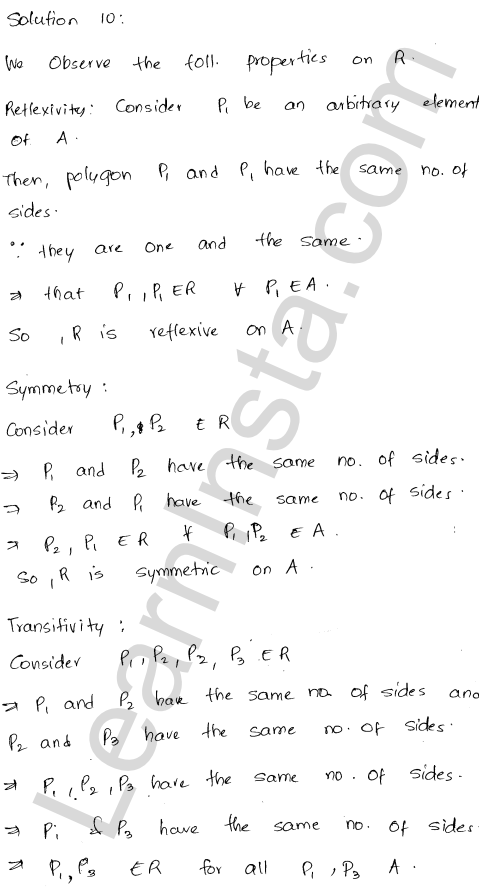 Solution 10:
We Observe the foll. properties on R.
Reflexivity: Consider P₁ be an arbitrary element
of A.
Then, polygon P₁ and P₁ have the same no. of
sides.
∵ they are one and the same.
⇒ that P₁, P₁ ∈ R ∀ P₁ ∈ A.
So, R is reflexive on A.
Symmetry:
Consider P₁, P₂ ∈ R
⇒ P₁ and P₂ have the same no. of sides.
⇒ P₂ and P₁ have the same no. of sides.
⇒ P₂, P₁ ∈ R ∀ P₁, P₂ ∈ A.
So, R is symmetric on A.
Transitivity:
Consider P₁, P₂, P₂, P₃ ∈ R
⇒ P₁ and P₂ have the same no. of sides and
P₂ and P₃ have the same no. of sides.
⇒ P₁, P₂, P₃ have the same no. of sides.
⇒ P₁ & P₃ have the same no. of sides
⇒ P₁, P₃ ∈ R for all P₁, P₃ A.
LearnInsta.com